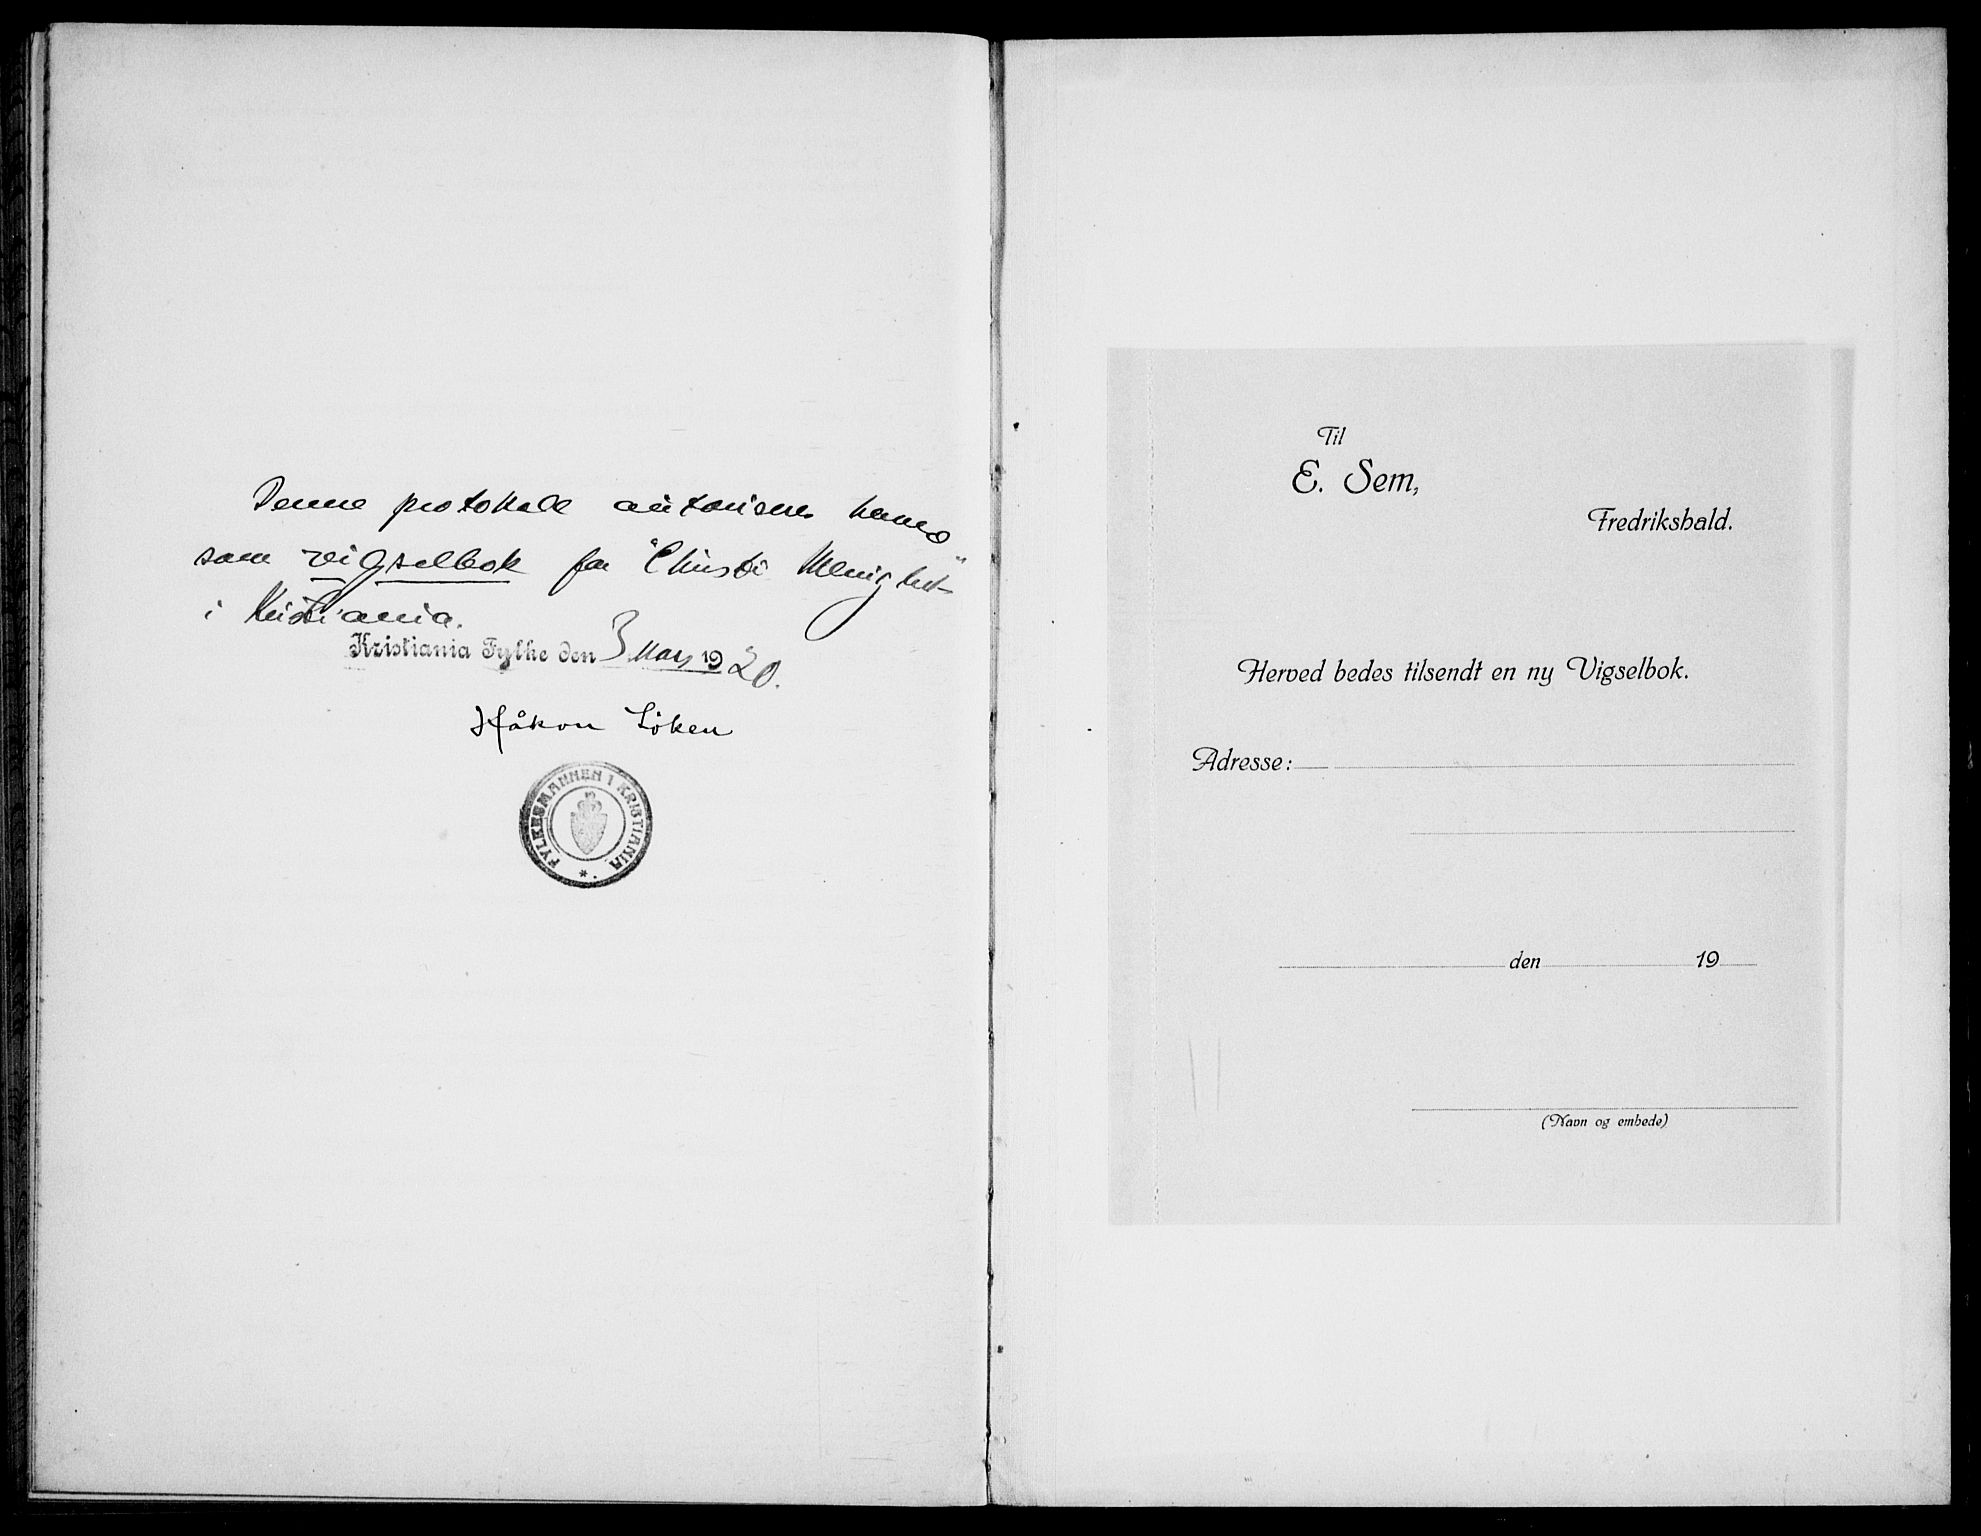 Denne protokoll autoriseres herved
som vigselbok for "Christi Menighet"
i Kristiania.
Kristiania Fylke den 3 Mars 1920.
Håkon Löken
FYLKESMANNEN I KRISTIANIA
Til
E. Sem,
Fredrikshald.
Herved bedes tilsendt en ny Vigselbok.
Adresse:
den 19
(Navn og embede)